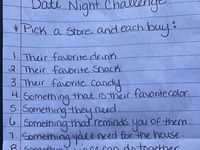 Date Night Challenge
* Pick a store and each buy:
1. Their favorite drink
2. Their favorite snack
3. Their favorite candy
4. Something that is their favorite color
5. Something they need
6. Something that reminds you of them
7. Something y'all need for the house
8. Something can do together